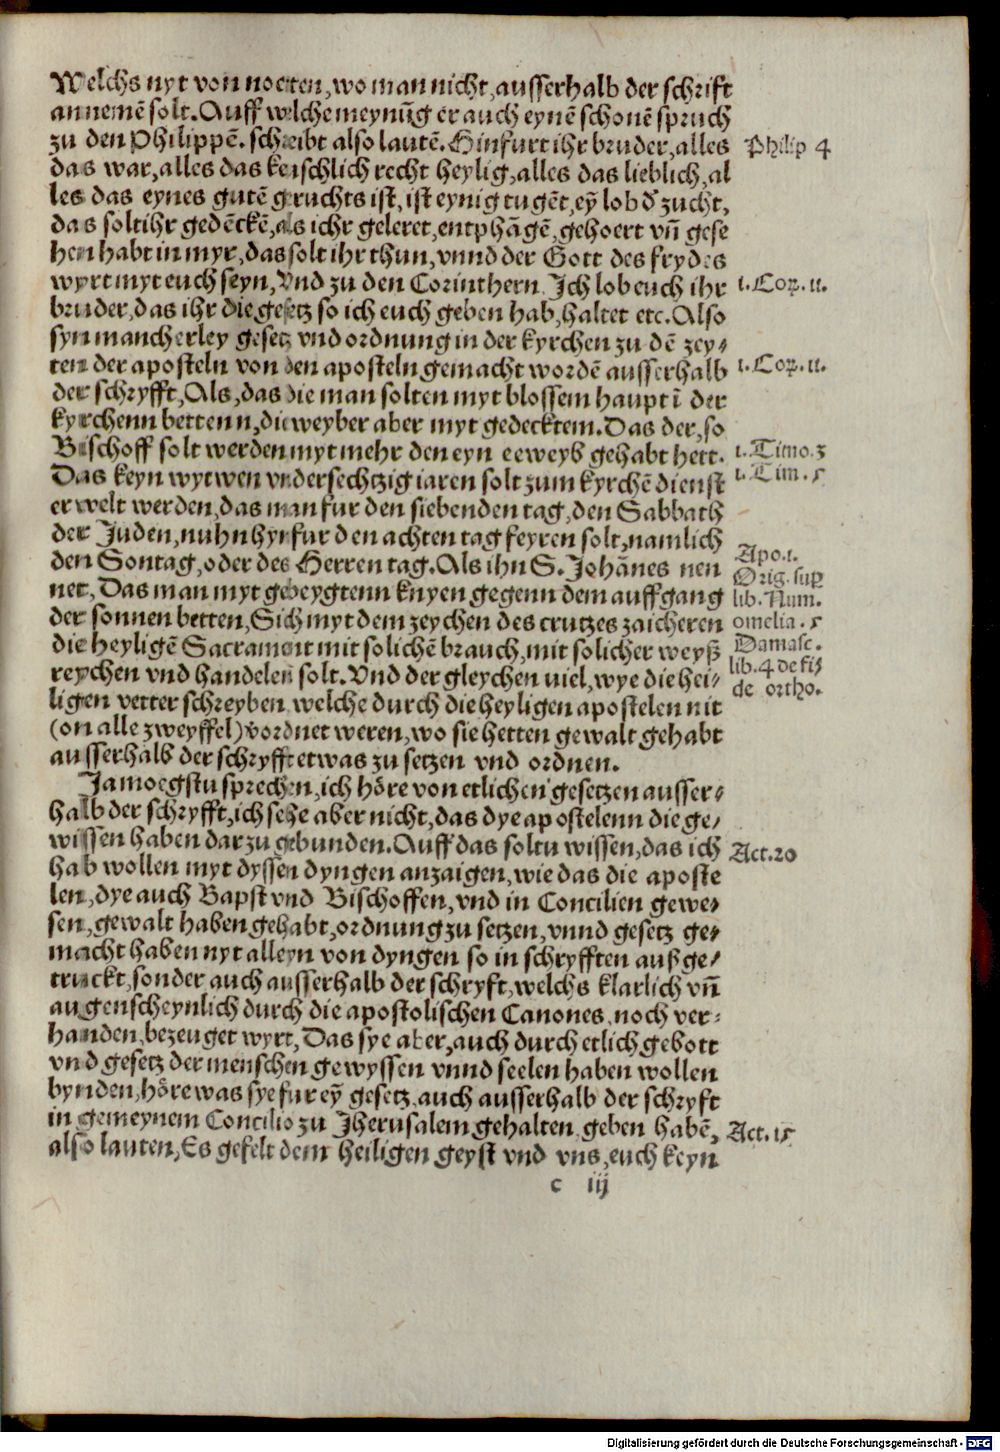 Welchs nyt von noetten, wo man nicht, ausserhalb der schrift
annemē solt. Auff welche meynūg er auch eynē schonē spruch
zu den Philippē. schreibt also lautē. Hinfurt ihr bruder, alles
Philip 4
das war, alles das keuschlich recht heylig, alles das lieblich, al
les das eynes gutē geruchts ist, ist eynig tugēt, eȳ lob d' zucht,
das solt ihr gedēckē, als ichr geleret, entphāgē, gehoert vn̄ gese
hen habt in myr, das solt ihr thun, vnnd der Gott des frydes
wyrt myt euch seyn, Vnd zu den Corinthern. Ich lob euch ihr
1. Cor. 11.
bruder, das ihr die gesetz so ich euch geben hab, haltet etc. Also
syn mancherley gesetz vnd ordnung in der kyrchen zu dē zey⸗
ten der aposteln von den aposteln gemacht wordē ausserhalb
1. Cor. 11.
der schryfft, Als, das die man solten myt blossem haupt ī der
kyrchenn bettenn, die weyber aber myt gedecktem. Das der, so
Bischoff solt werden myt mehr den eyn eeweyb gehabt hett.
1. Timo. 3
Das keyn wytwen vndersechtzig iaren solt zum kyrchē dienst
1. Tim. 5
erwelt werden, das man fur den siebenden tag, den Sabbath
der Juden, nuhn hynfur den achten tag feyren solt, namlich
den Sontag, oder des Herren tag. Als ihn S. Johānes nen
Apo. 1.
net, Das man myt gebeygtenn knyen gegenn dem auffgang
Orig. sup
lib. Num.
der sonnen betten, Sich myt dem zeychen des crutzes zaicheren
omelia. 5
die heyligē Sacrament mit solichē brauch, mit solicher weyß
Damasc.
reychen vnd handelen solt. Vnd der gleychen viel, wye die hei⸗
lib. 4 de fi⸗
ligen vetter schreyben, welche durch die heyligen apostelen nit
de ortho.
(on alle zweyffel) vordnet weren, wo sie hetten gewalt gehabt
ausserhalb der schryfft etwas zu setzen vnd ordnen.
Ja moegstu sprechen, ich höre von etlichen gesetzen ausser⸗
halb der schryfft, ich sehe aber nicht, das dye apostelenn die ge⸗
wissen haben dar zu gebunden. Auff das soltu wissen, das ich
Act. 20
hab wollen myt dyssen dyngen anzaigen, wie das die aposte
len, dye auch Bapst vnd Bischoffen, vnd in Concilien gewe⸗
sen, gewalt haben gehabt, ordnung zu setzen, vnnd gesetz ge⸗
macht haben nyt alleyn von dyngen so in schryfften außge⸗
truckt, sonder auch ausserhalb der schryft, welchs klarlich vn̄
augenscheynlich durch die apostolischen Canones, noch ver⸗
handen, bezeuget wyrt, Das sye aber, auch durch etlich gebott
vnd gesetz der menschen gewyssen vnnd seelen haben wollen
bynden, höre was sye fur eȳ gesetz, auch ausserhalb der schryft
in gemeynem Concilio zu Jherusalem gehalten, geben habē,
Act. 15
also lauten, Es gefelt dem heiligen geyst vnd vns, euch keyn
c iij
Digitalisierung gefördert durch die Deutsche Forschungsgemeinschaft - DFG